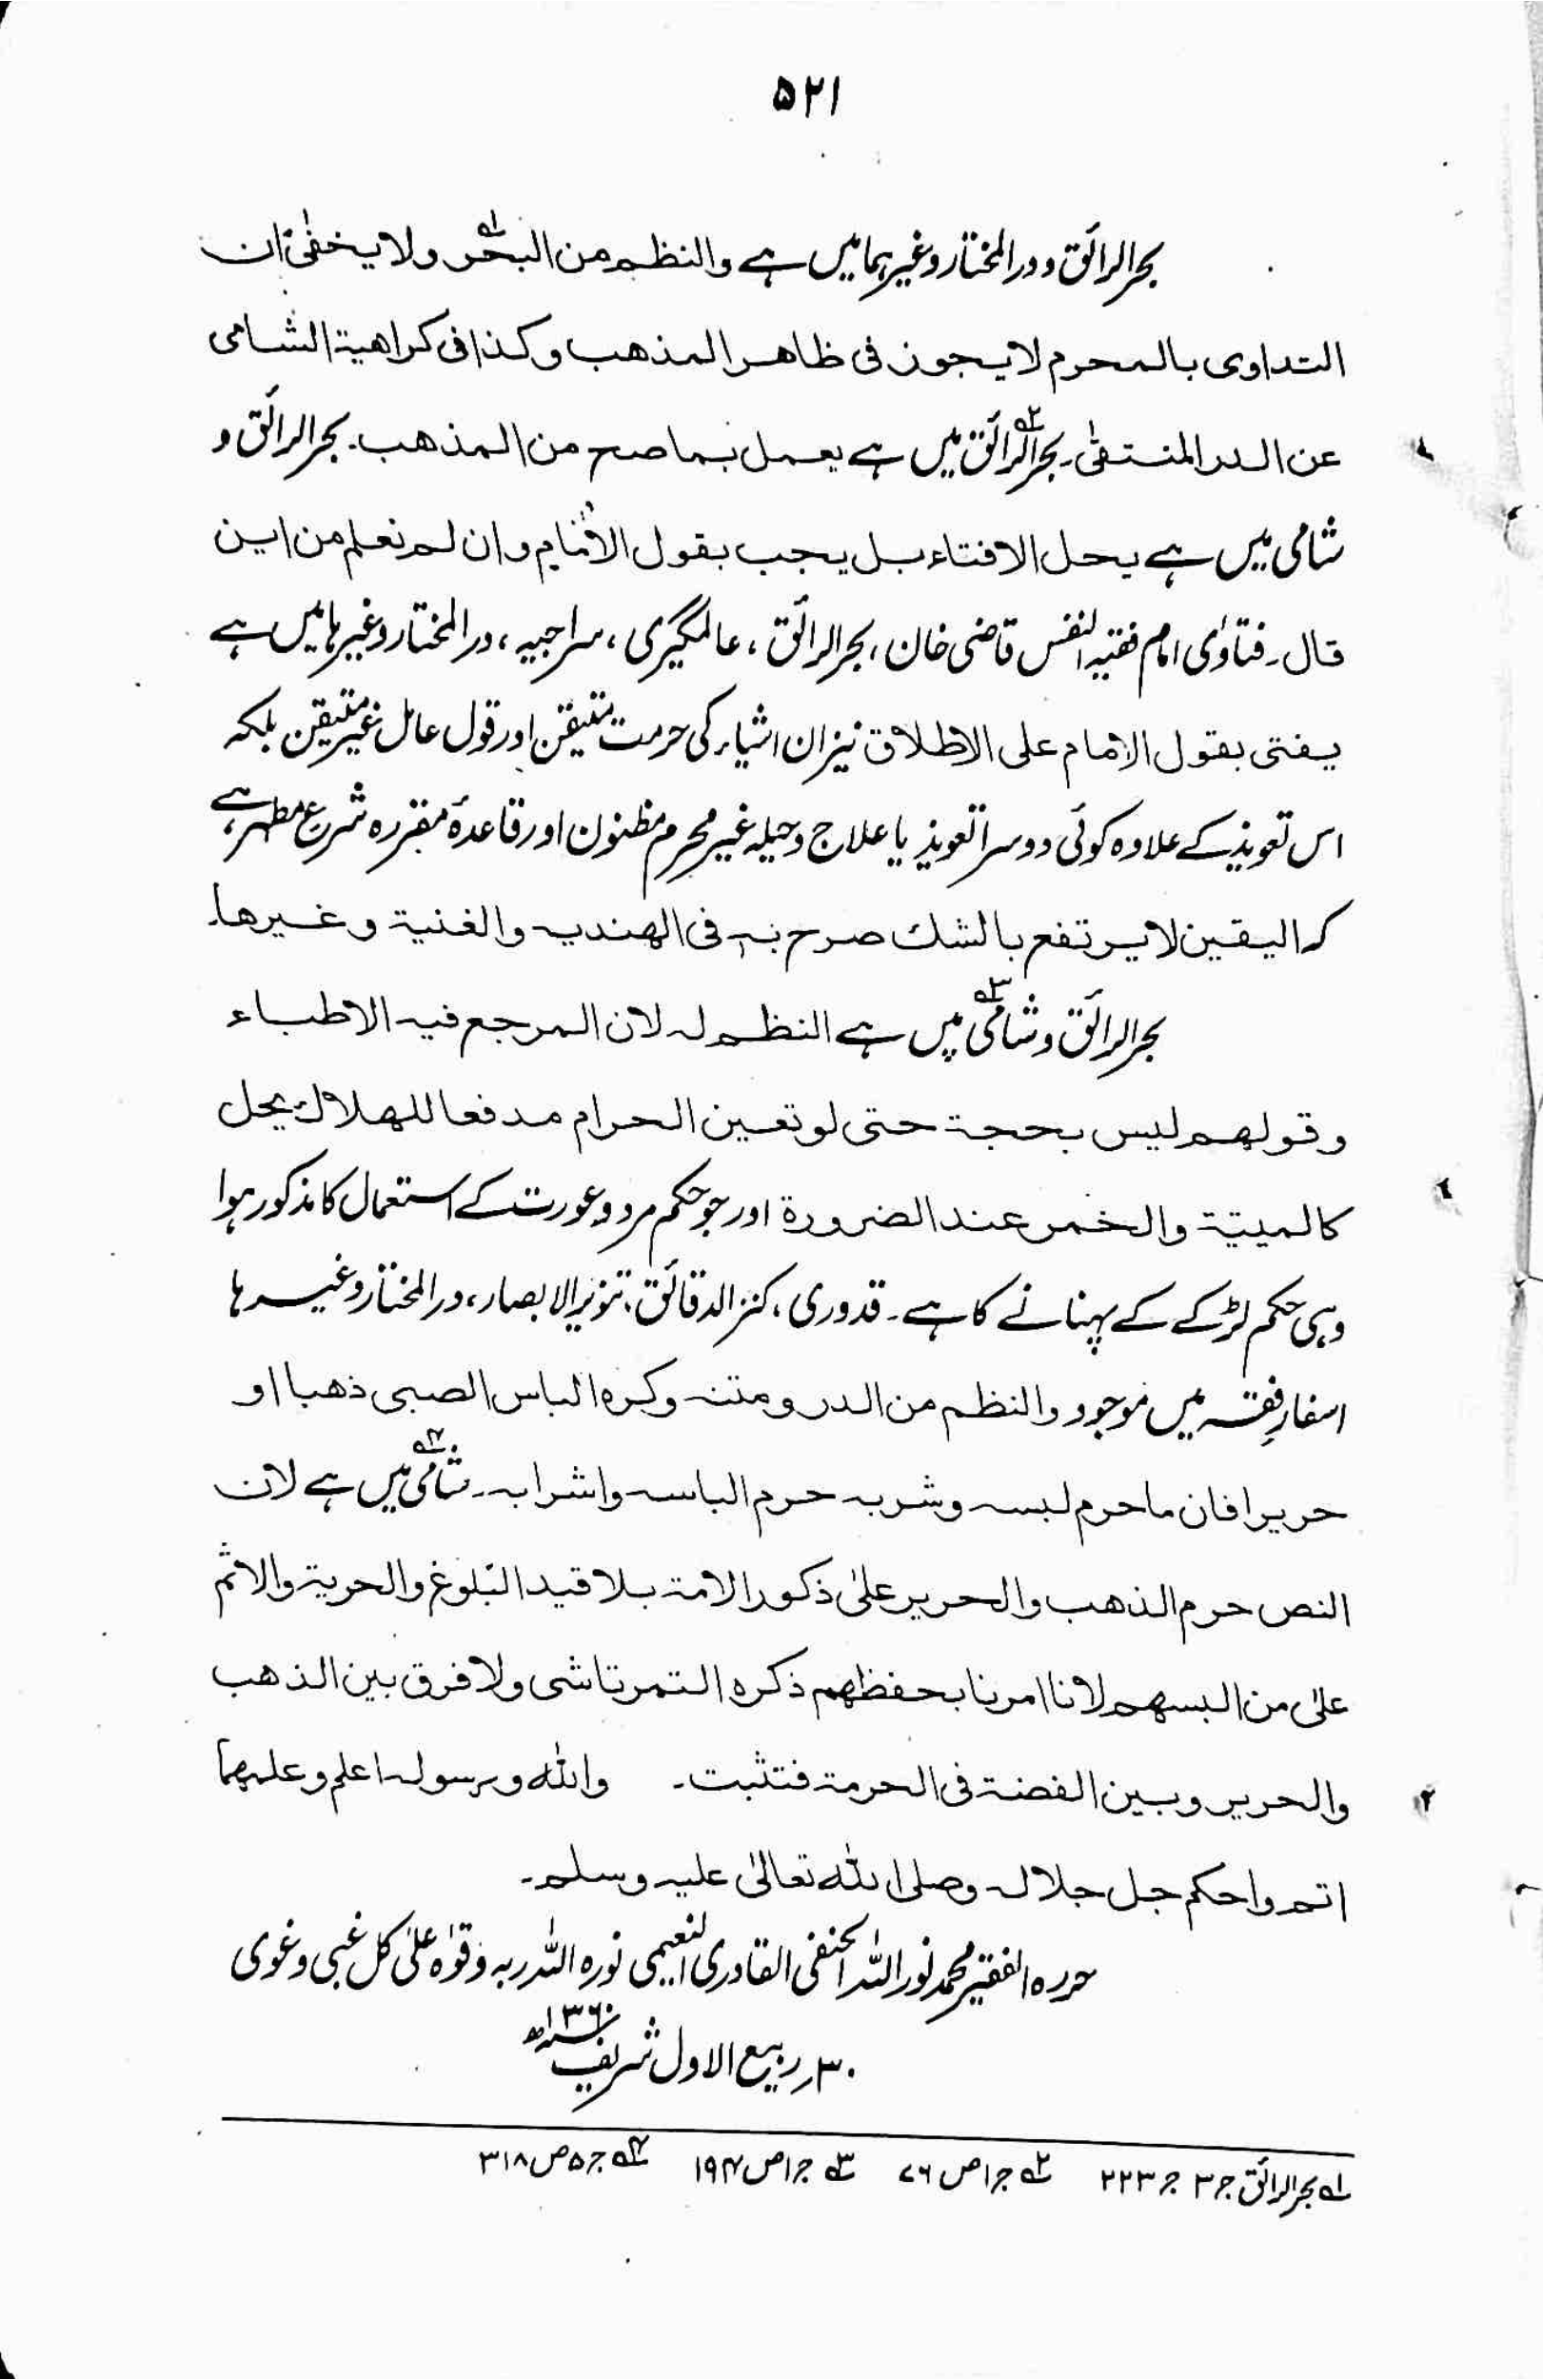 ۵۲۱
بحر الرائق و در المختار وغیرہما میں ہے والنظم من البحر ۱ہ ولا یخفیٰ ان
التداوی بالمحرم لا یجوز فی ظاہر المذھب وکذا فی کراھیۃ الشامی
عن الدر المنتقیٰ۔ بحر الرائق ۲ہ میں ہے یعمل بما صح من المذھب۔ بحر الرائق و
شامی میں ہے یحل الافتاء بل یجب بقول الامام وان لم نعلم من این
قال۔ فتاوٰی امام فقیہ النفس قاضی خان، بحر الرائق، عالمگیری، سراجیہ، در المختار وغیرہا میں ہے
یفتی بقول الامام علی الاطلاق نیز ان اشیاء کی حرمت متیقن اور قول عامل غیر متیقن بلکہ
اس تعویذ کے علاوہ کوئی دوسرا تعویذ یا علاج وحیلہ غیر محرم مظنون اور قاعدۂ مقررہ شرع مطہر ہے،
کہ الیقین لا یرتفع بالشک صرح بہ فی الھندیہ والغنیۃ وغیرھا۔
بحر الرائق و شامی ۳ہ میں ہے النظم لہ لان المرجع فیہ الاطباء
وقولھم لیس بحجۃ حتی لو تعین الحرام مدفعا للھلاک یحل
کالمیتۃ والخمر عند الضرورۃ اور جو حکم مرد و عورت کے استعمال کا مذکور ہوا
وہی حکم لڑکے کے پہنانے کا ہے۔ قدوری، کنز الدقائق، تنویر الابصار، در المختار وغیرہا
اسفارِ فقہ میں موجود والنظم من الدر ومتنہ وکرہ الباس الصبی ذھبا او
حریرا فان ما حرم لبسہ وشربہ حرم الباسہ واشرابہ۔ شامی ۴ہ میں ہے لان
النص حرم الذھب والحریر علیٰ ذکور الامۃ بلا قید البلوغ والحریۃ والاثم
علیٰ من البسھم لانا امرنا بحفظھم ذکرہ التمرتاشی ولا فرق بین الذھب
والحریر وبین الفضۃ فی الحرمۃ فتثبت۔ واللہ ورسولہ اعلم وعلمھما
اتم واحکم جل جلالہ وصلی اللہ تعالیٰ علیہ وسلم۔
حررہ الفقیر محمد نور اللہ الحنفی القادری النعیمی نورہ اللہ ربہ وقوّاہ علیٰ کل غبی وغوی
۳۰ ربیع الاول شریف ۱۳۶۰ھ
۱ہ بحر الرائق ج ۳ ج ۲۲۳ ۲ہ ج ۱ ص ۷۶ ۳ہ ج ۱ ص ۱۹۴ ۴ہ ج ۵ ص ۳۱۸